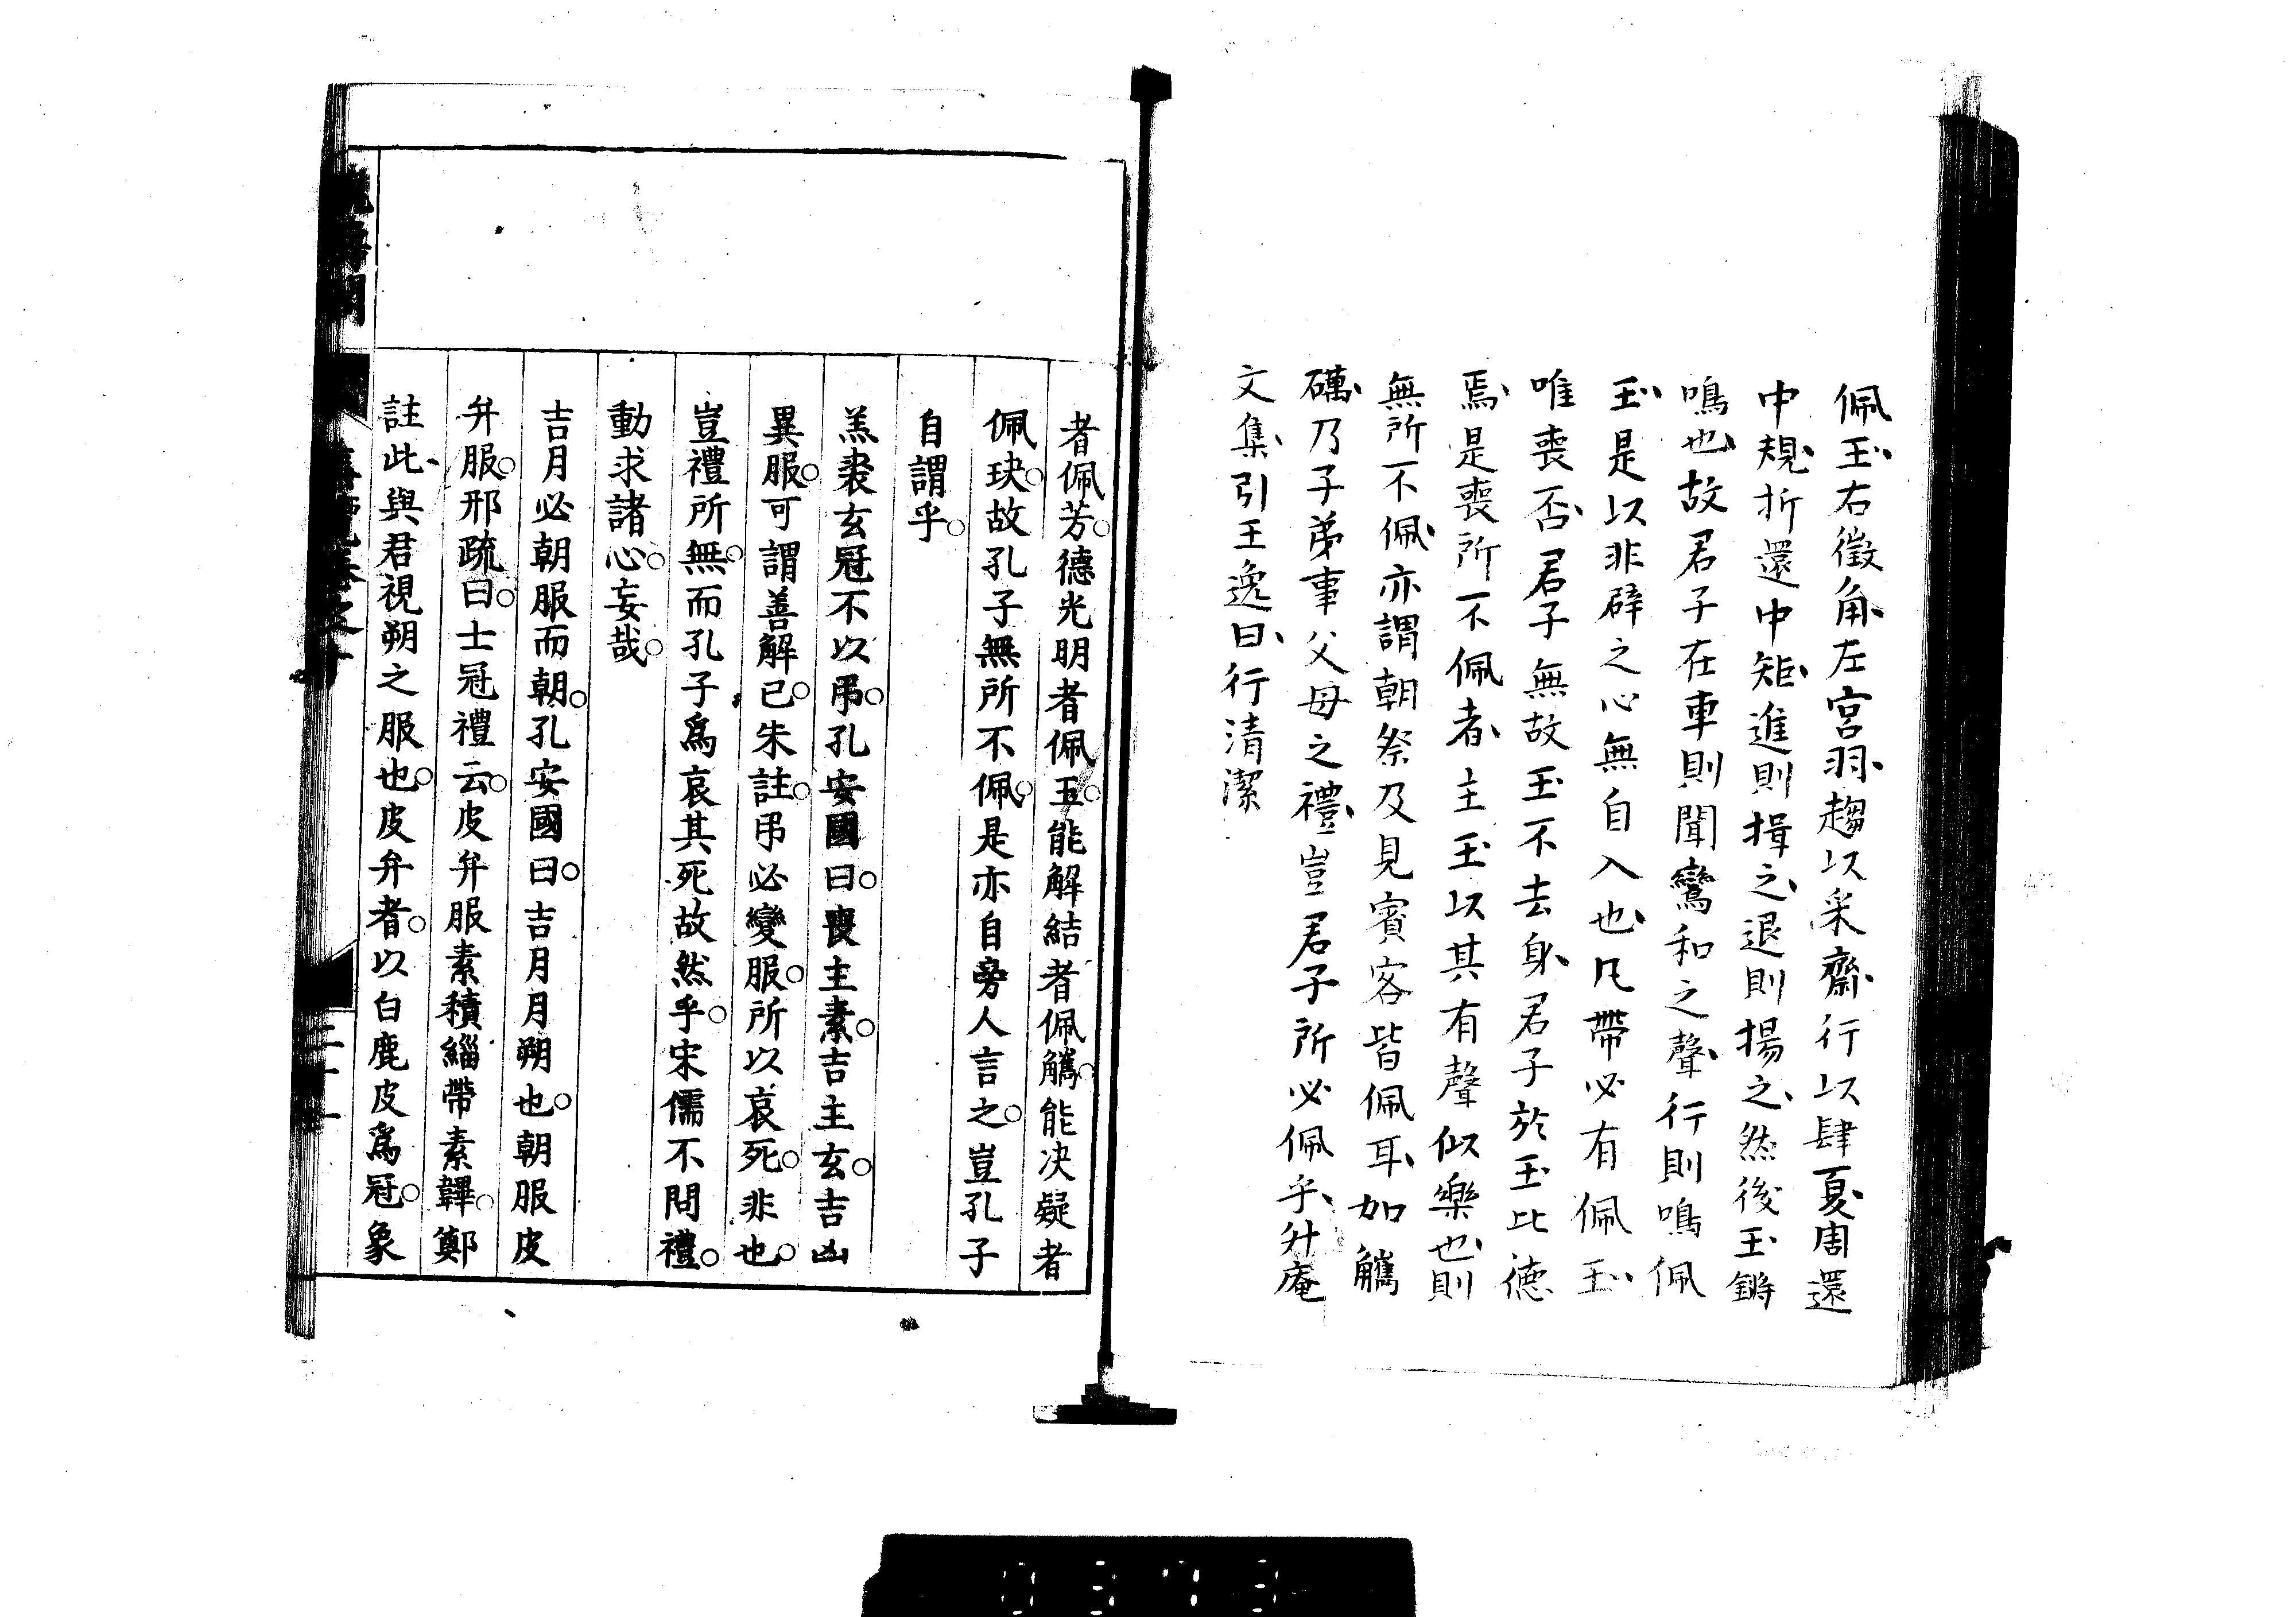 佩玉、右徵角、左宮羽、趨以采齋、行以肆夏、周還
中規、折還中矩、進則揖之、退則揚之、然後玉鏘
鳴也、故君子在車則聞鸞和之聲、行則鳴佩
玉、是以非辟之心無自入也、凡帶必有佩玉、
唯喪否、君子無故玉不去身、君子於玉比德
焉、是喪所不佩者、主玉以其有聲似樂也、則
無所不佩、亦謂朝祭及見賓客皆佩耳、如觿
礪、乃子弟事父母之禮、豈君子所必佩乎、升庵
文集、引王逸曰、行清潔
者佩芳。德光明者佩玉。能解結者佩觿。能决疑者
佩玦。故孔子無所不佩。是亦自旁人言之。豈孔子
自謂乎。
羔裘玄冠不以弔。孔安國曰。喪主素。吉主玄。吉凶
異服。可謂善解已。朱註。弔必變服。所以哀死。非也。
豈禮所無。而孔子爲哀其死故然乎。宋儒不問禮。
動求諸心。妄哉。
吉月必朝服而朝。孔安國曰。吉月月朔也。朝服皮
弁服。邢疏曰。士冠禮云。皮弁服素積緇帶素韠。鄭
註此、與君視朔之服也。皮弁者。以白鹿皮爲冠。象
二十一